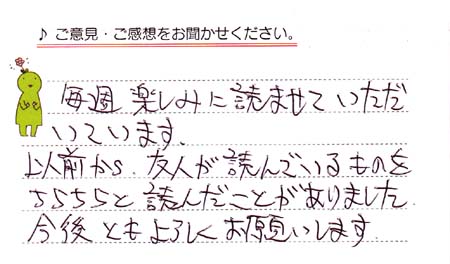 ♪ ご意見・ご感想をお聞かせください。
毎週 楽しみに読ませていただ
いています。
以前から、友人が読んでいるものを
ちらちらと読んだことがありました。
今後ともよろしくお願いします。